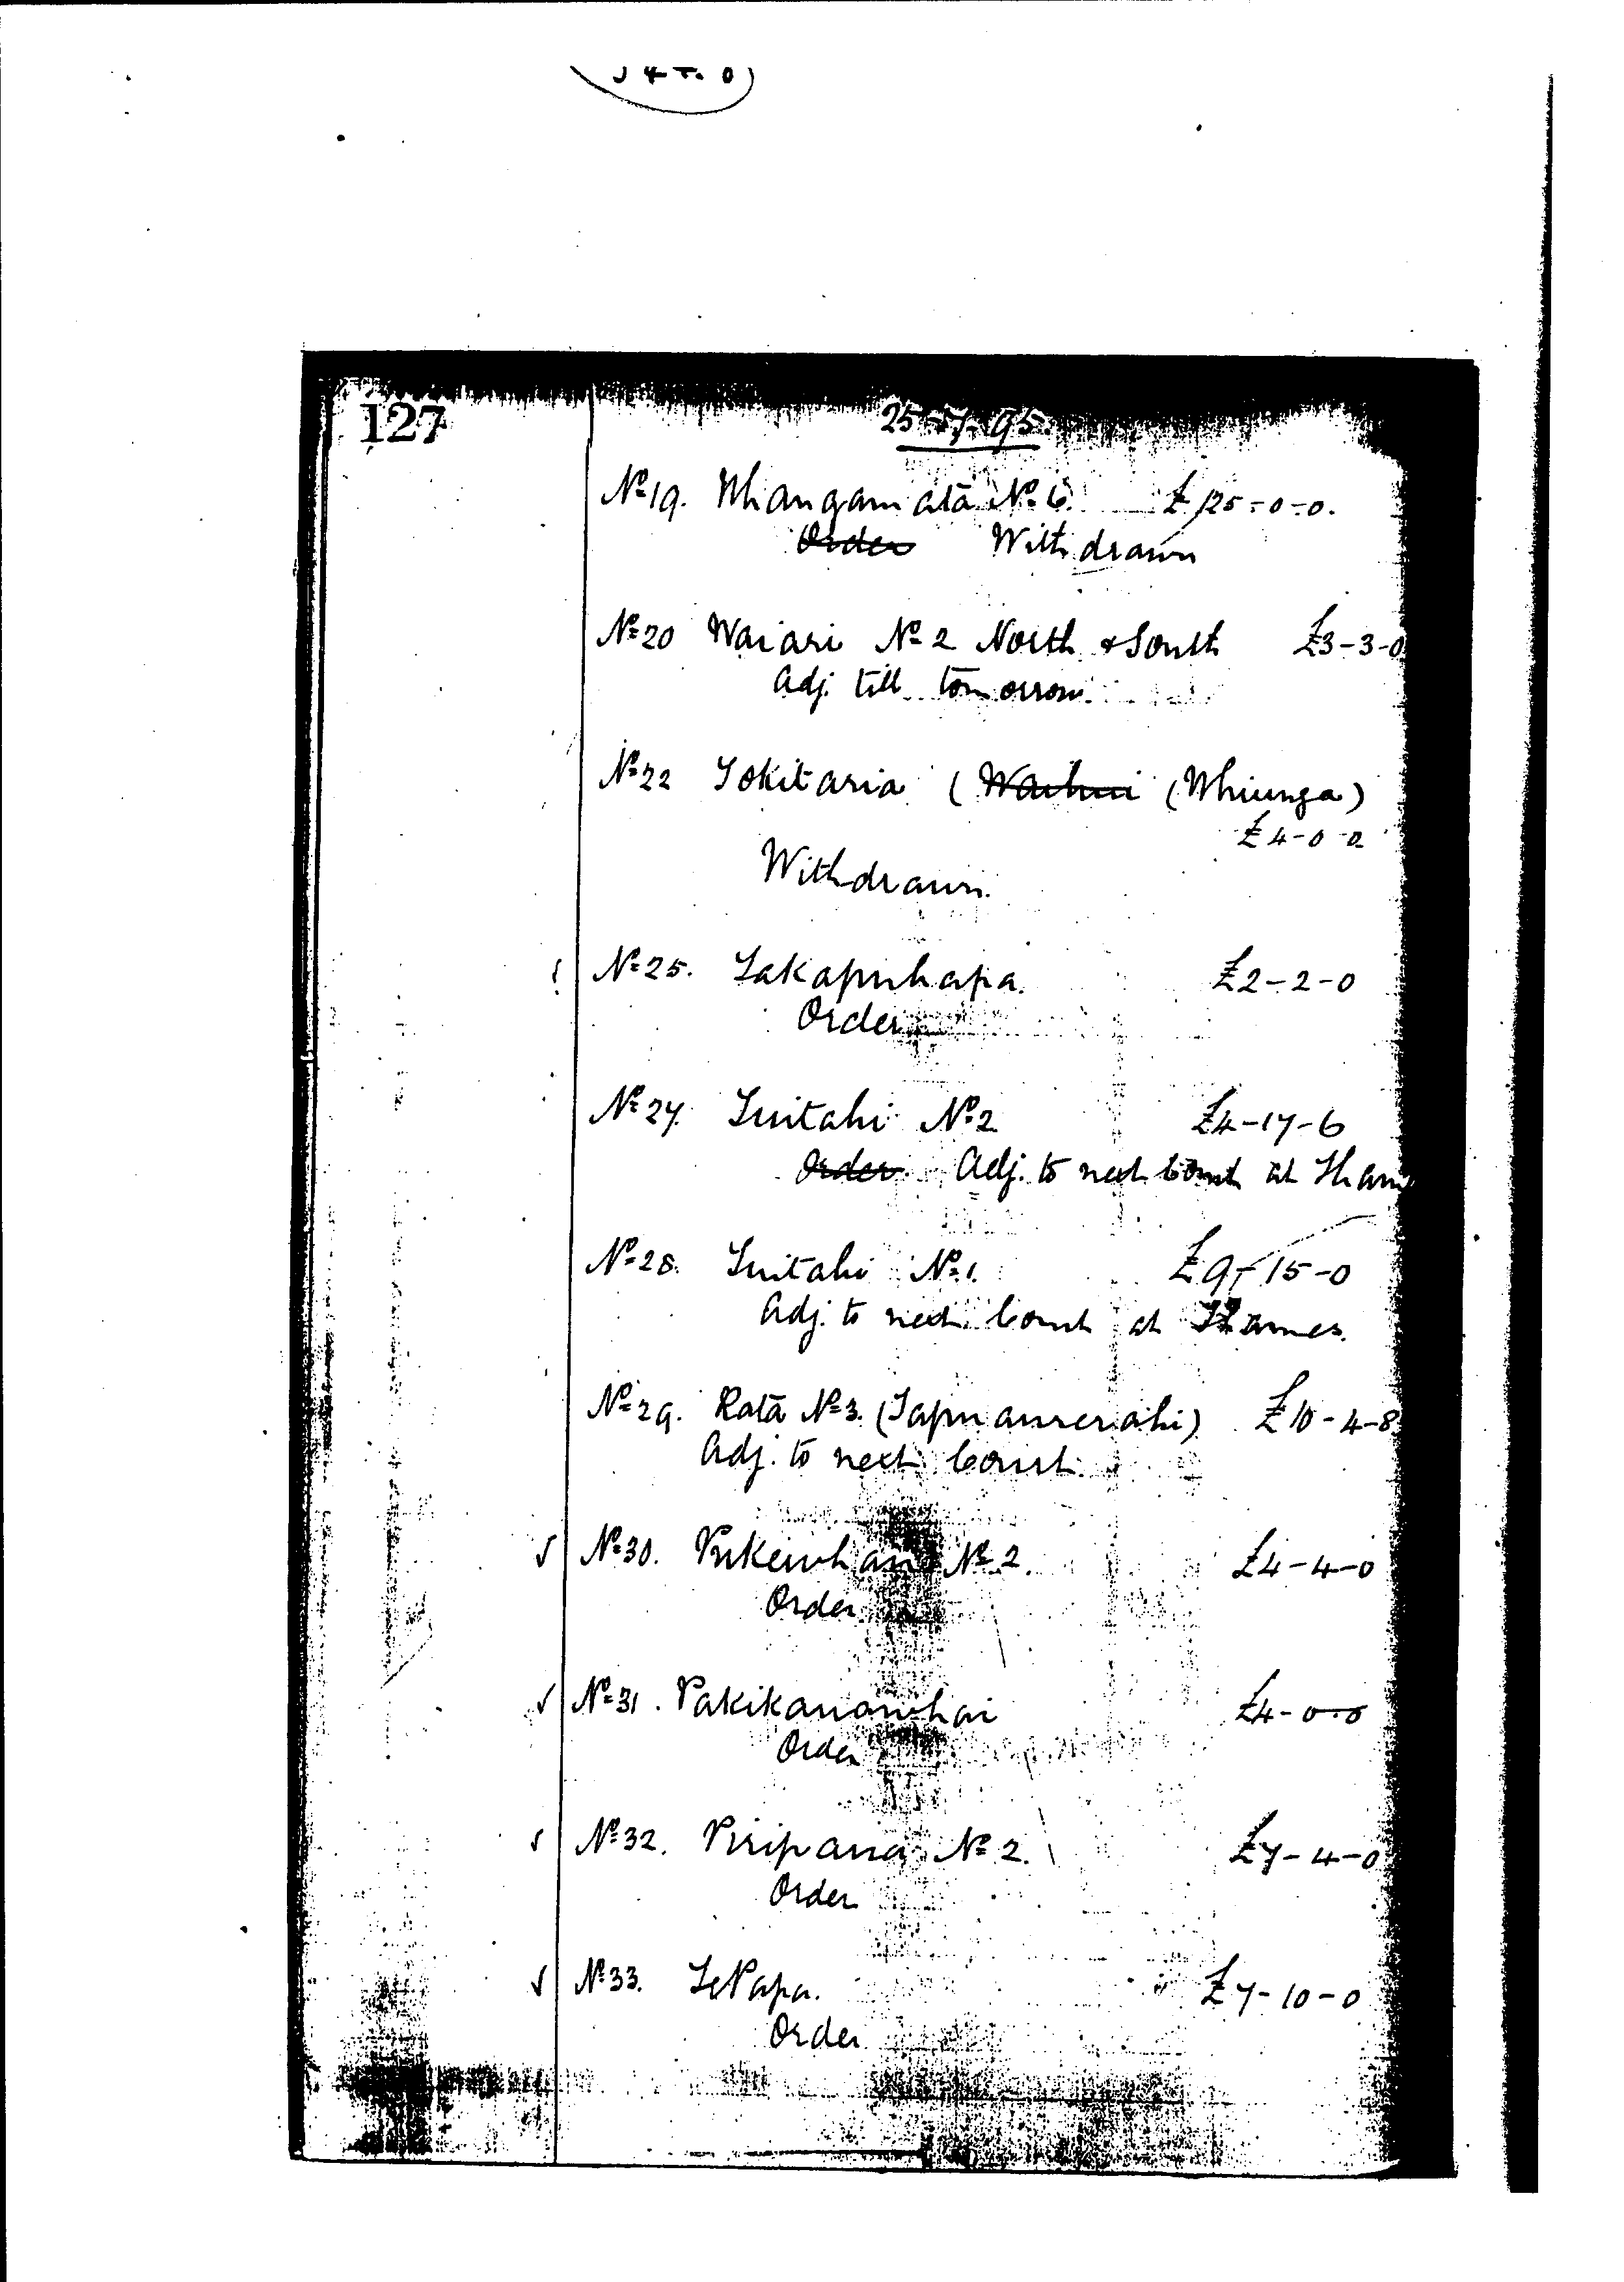 127
25-7-95
No 19. Whangamata No 6. £125-0-0.
Order Withdrawn
No 20 Waiari No 2 North & South £3-3-0
Adj. till tomorrow.
No 22 Tokitaria ( Waihui (Whiunga)
£4-0-0
Withdrawn.
No 25. Takapuhapa. £2-2-0
Order
No 27. Tuitahi No 2 £4-17-6
Order Adj. to next Court at Tham
No 28. Tuitahi No 1. £9-15-0
Adj. to next Court at Thames.
No 29. Rata No 3. (Tapuaurerahi) £10-4-8
Adj. to next Court.
No 30. Pukewhau No 2. £4-4-0
Order
No 31. Pakikanawhai £4-0-0
Order
No 32. Piripaua No 2. £7-4-0
Order
No 33. Te Papa. £7-10-0
Order